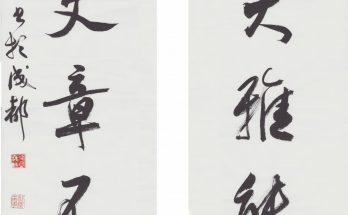 大雅能
文章不
书於成都